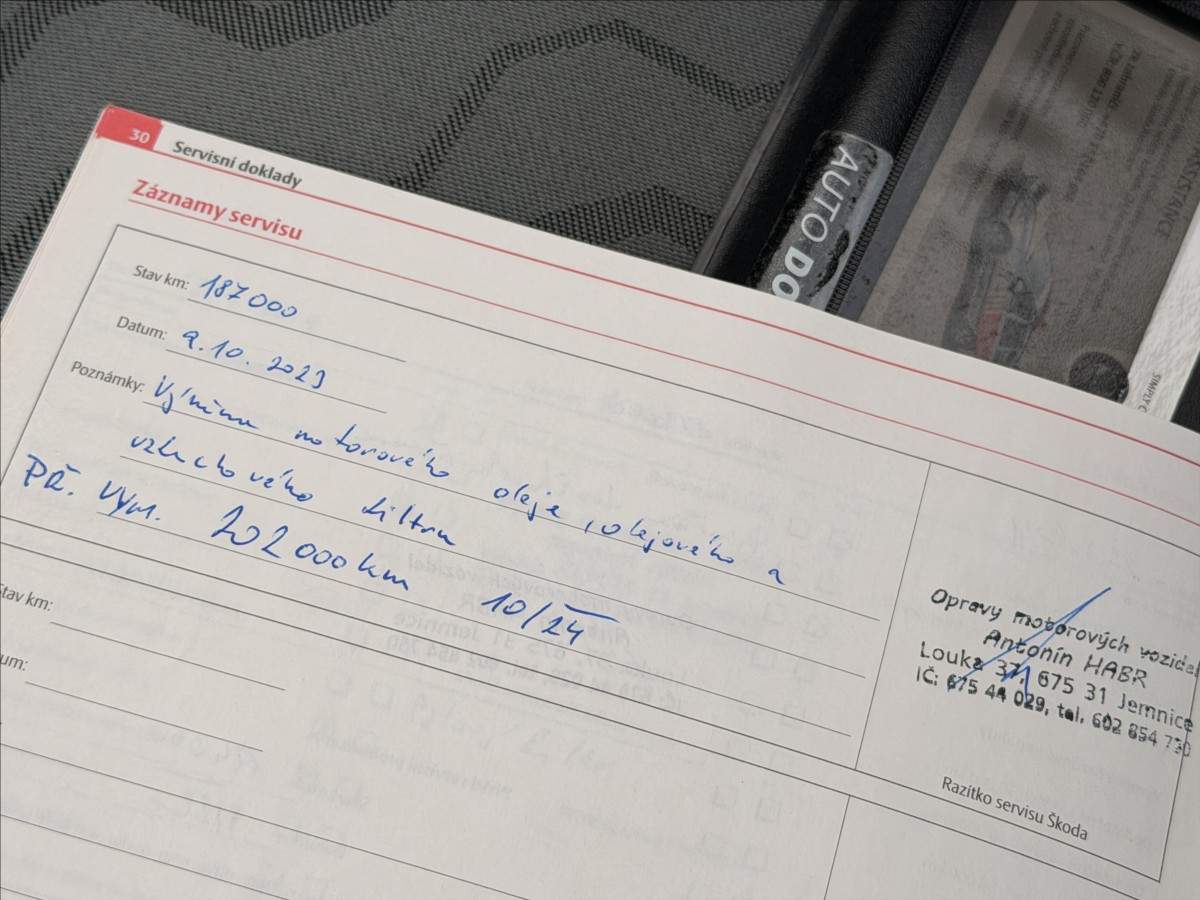 30 Servisní doklady
Záznamy servisu
Stav km: 187000
Datum: 9.10. 2023
Poznámky: Výměna motorového oleje, olejového a
vzduchového filtru
PŘ. VYM. 202 000 km 10/24
Opravy motorových vozidel
Antonín HABR
Louka 37, 675 31 Jemnice
IČ: 675 44 029, tel. 602 854 730
Razítko servisu Škoda
Stav km:
um:
AUTO DO
ASISTANCE
SIMPLY C